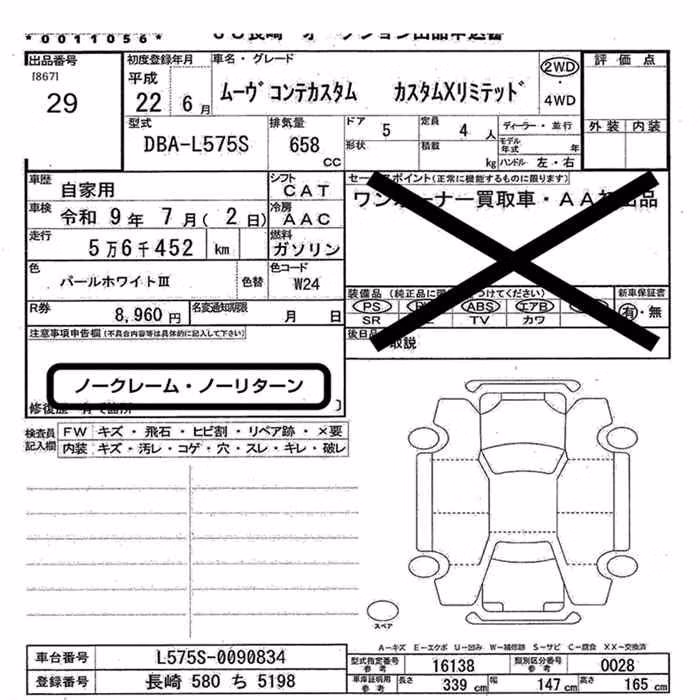 *0011056*
出品番号
[867]
29
初度登録年月
平成
22 6月
車名・グレード
ムーヴコンテカスタム カスタムXリミテッド
2WD
・
4WD
評価点
外装 内装
型式
DBA-L575S
排気量
658
CC
ドア 5
定員 4 人
ディーラー・並行
形状
積載 kg
モデル年式 年
ハンドル 左・右
車歴 自家用
シフト CAT
車検 令和 9年 7月(2日)
冷房 AAC
走行 5万6千452 km
燃料 ガソリン
色 パールホワイトIII
色替
色コード W24
R券 8,960円
名変通知期限 月 日
セールスポイント(正常に機能するものに限ります)
装備品
新車保証書
有・無
PS ABS エアB
SR TV カワ
後日品 取説
注意事項申告欄(不具合内容等は具体的に記入して下さい)
ノークレーム・ノーリターン
検査員記入欄
FW キズ・飛石・ヒビ割・リペア跡・×要
内装 キズ・汚レ・コゲ・穴・スレ・キレ・破レ
スペア
A-キズ E-エクボ U-凹み W-補修跡 S-サビ C-腐食 XX-交換済
車台番号 L575S-0090834
登録番号 長崎 580 ち 5198
型式指定番号 参考 16138
類別区分番号 参考 0028
車庫証明用 参考 長さ 339cm 幅 147cm 高さ 165cm